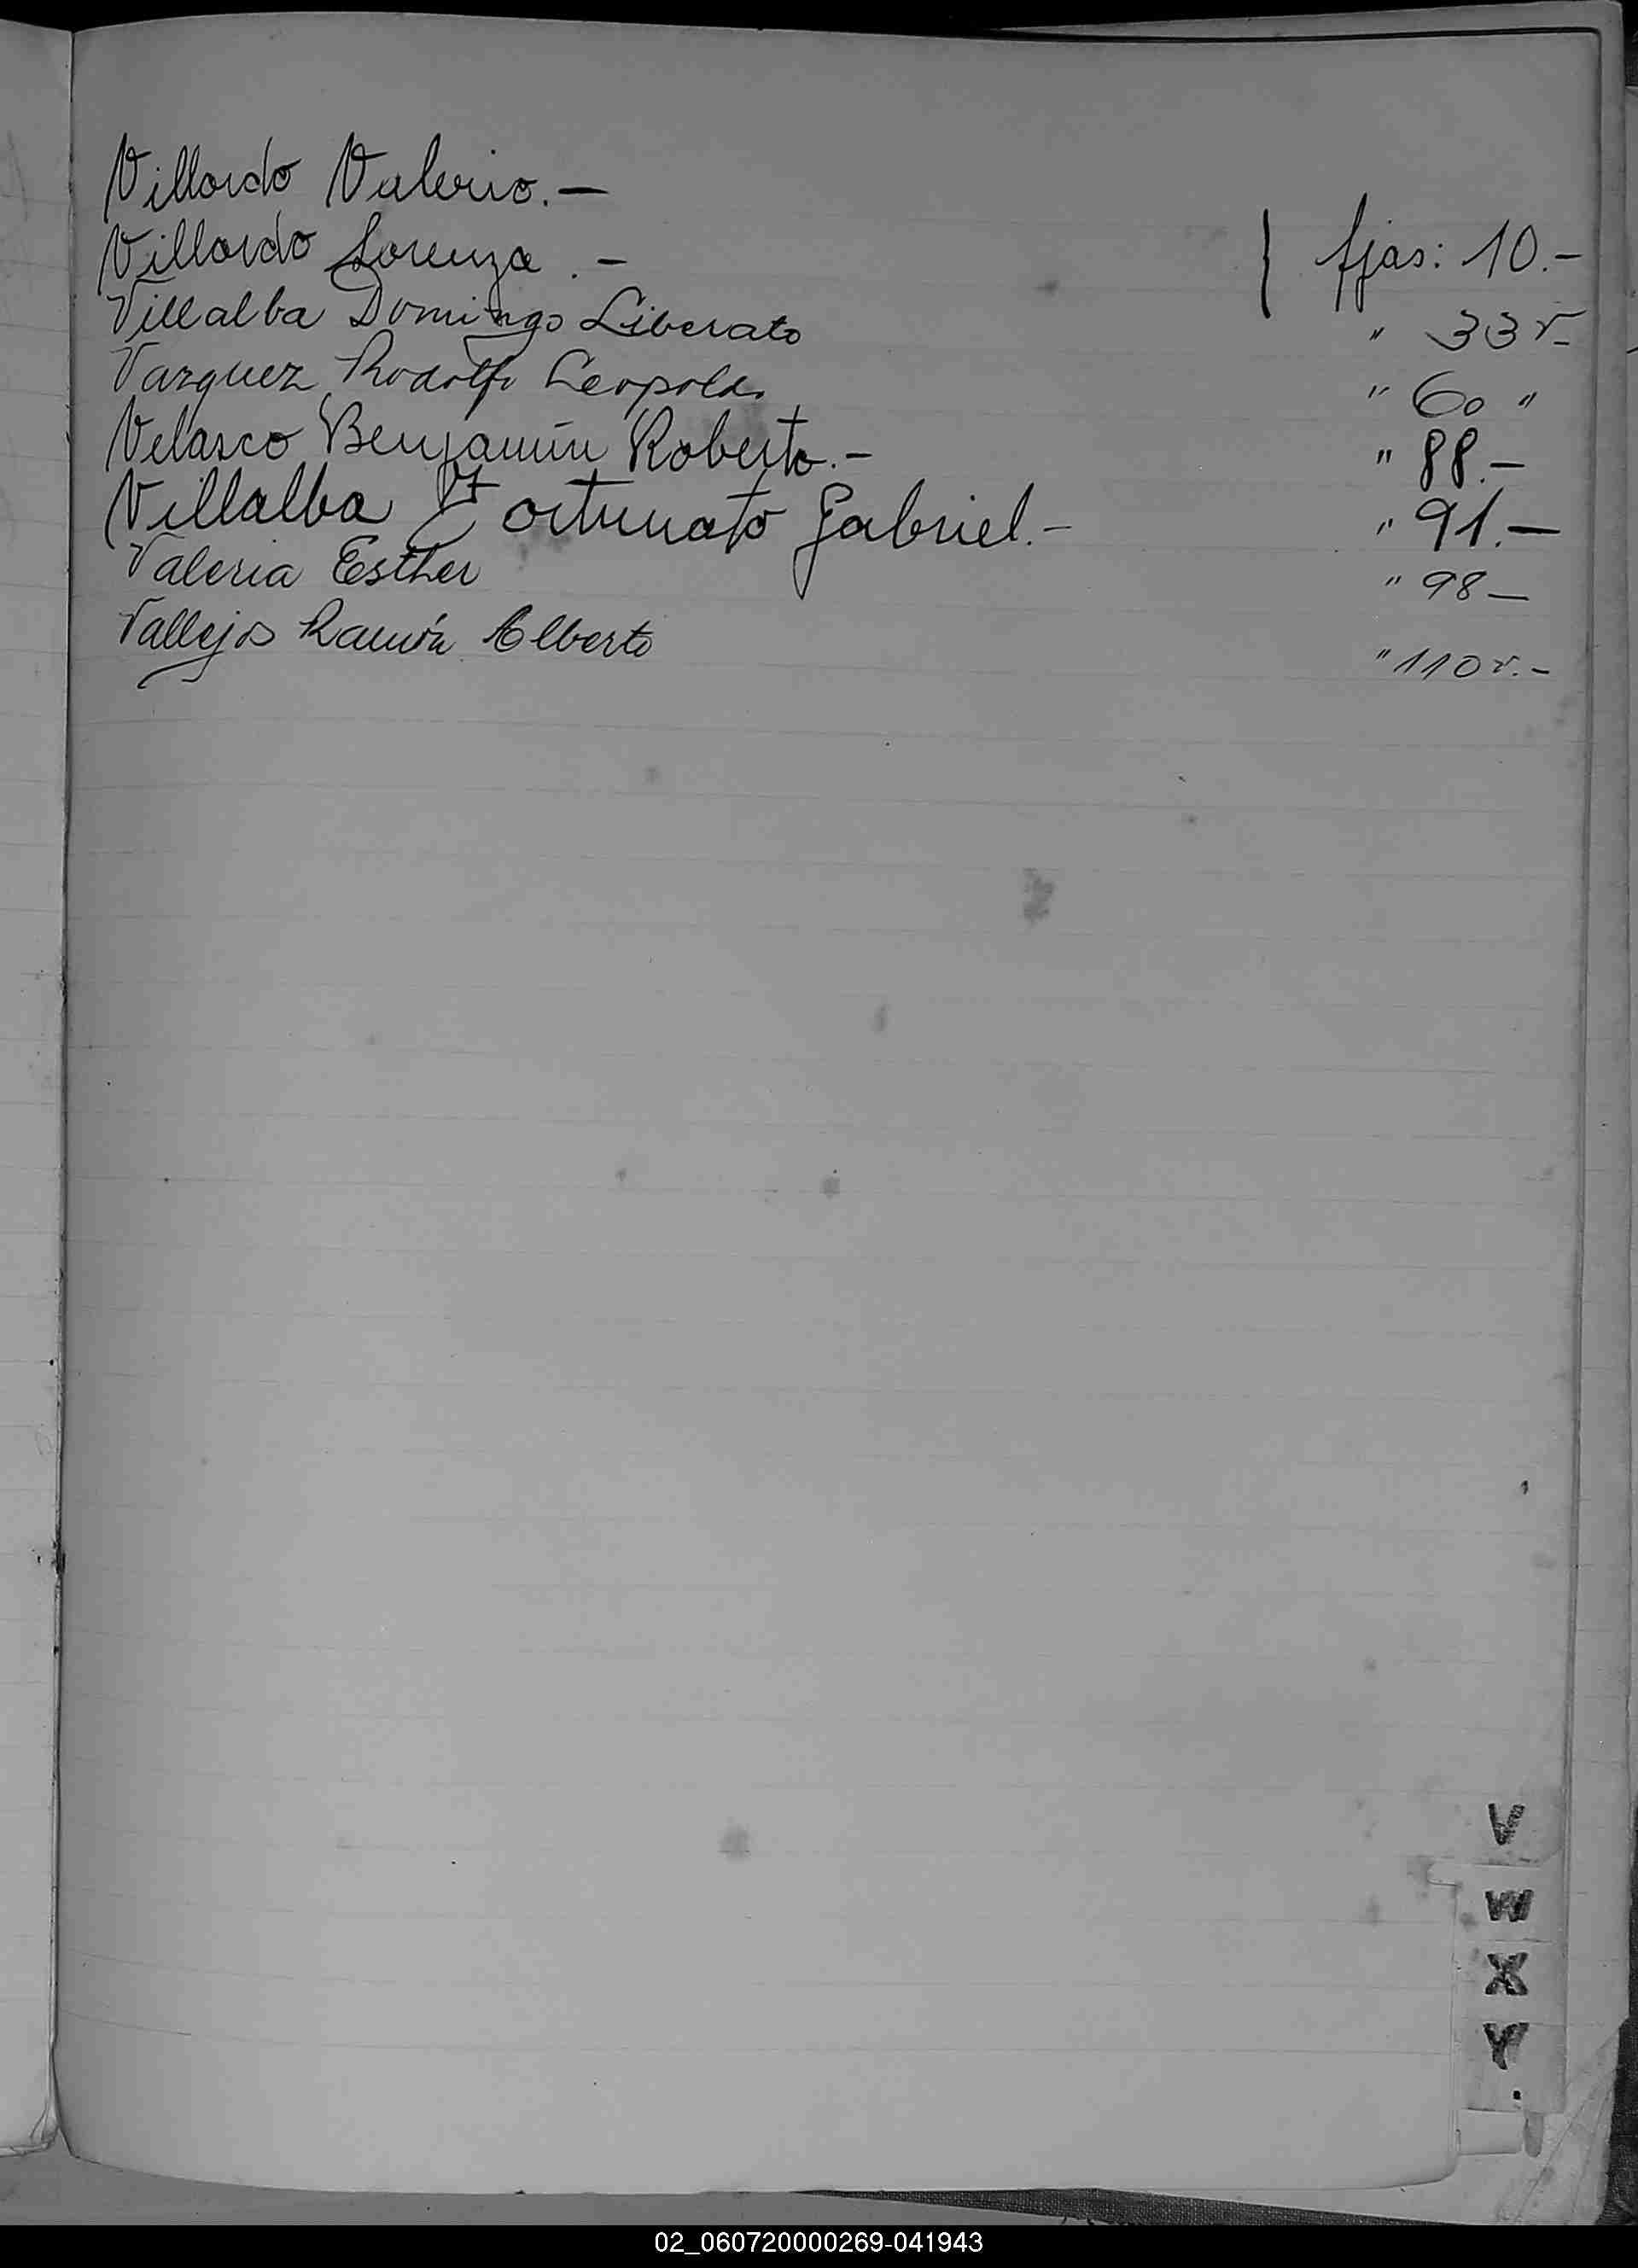 Villordo Valerio.—
Villordo Lorenza.— } fjas: 10.—
Villalba Domingo Liberato " 33 v—
Vazquez Rodolfo Leopoldo " 60 "
Velasco Benjamín Roberto.— " 88.—
Villalba Fortunato Gabriel.— " 91.—
Valeria Esther " 98—
Vallejos Ramón Alberto " 110 v.—
V
W
X
Y
02_060720000269-041943